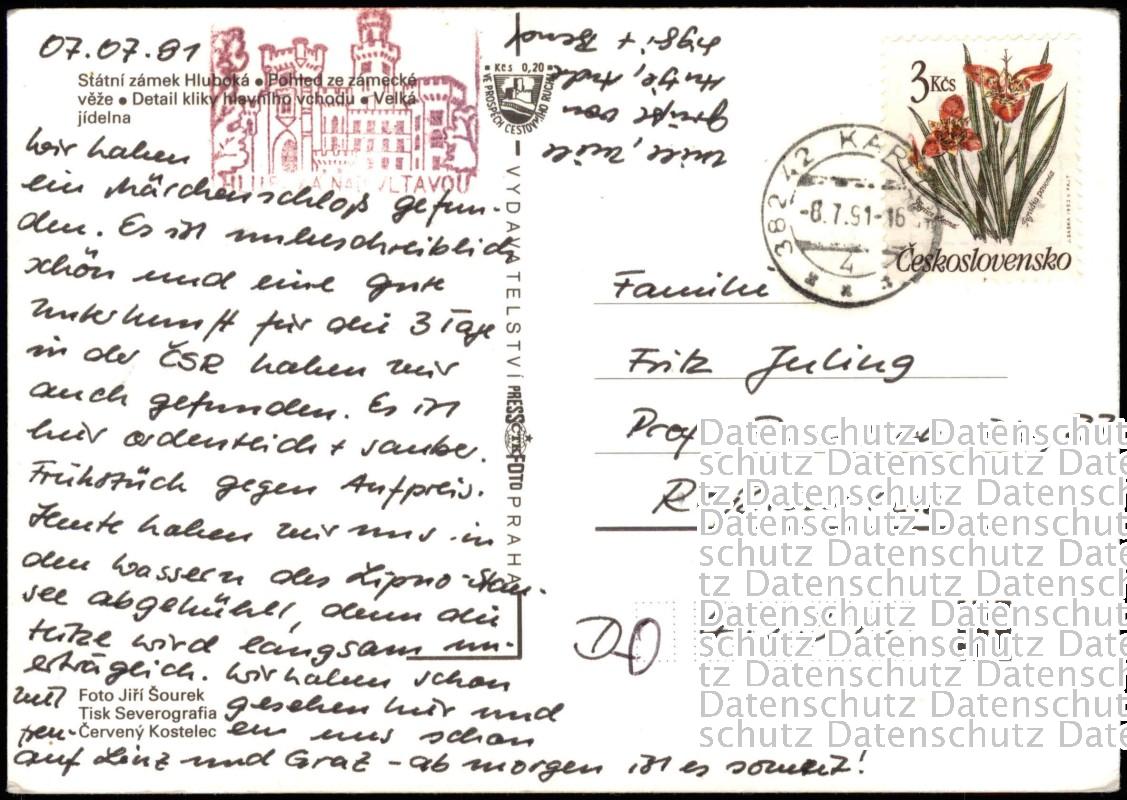 07.07.91
Státní zámek Hluboká • Pohled ze zámecké
věže • Detail kliky hlavního vchodu • Velká
jídelna
HLUBOKÁ NAD VLTAVOU
Wir haben
ein Märchenschloß gefun-
den. Es ist unbeschreiblich
schön und eine gute
Unterkunft für die 3 Tage
in der ČSR haben wir
auch gefunden. Es ist
hier ordentlich + sauber.
Frühstück gegen Aufpreis.
Heute haben wir uns in
den Wassern des Lipno-Stau-
see abgekühlt, denn die
Hitze wird langsam un-
erträglich. Wir haben schon
viel gesehen hier und
freu-en uns schon
auf Linz und Graz - ab morgen ist es soweit!
Foto Jiří Šourek
Tisk Severografia
Červený Kostelec
Viele, viele
Grüße von
Sigi + Bernd
Kčs 0,20
VE PROSPĚCH CESTOVNÍHO RUCHU
VYDAVATELSTVÍ PRESSFOTO PRAHA
ČTK
3 Kčs
Tigridia pavonia
Československo
382 42 KAP
-8.7.91-16
4
Familie
Fritz Juling
Prof
DO
Datenschutz Datenschutz Datenschutz
schutz Datenschutz Datenschutz Date
tz Datenschutz Datenschutz Datensch
Datenschutz Datenschutz Datenschutz
schutz Datenschutz Datenschutz Date
tz Datenschutz Datenschutz Datensch
Datenschutz Datenschutz Datenschutz
schutz Datenschutz Datenschutz Date
tz Datenschutz Datenschutz Datensch
Datenschutz Datenschutz Datenschutz
schutz Datenschutz Datenschutz Date